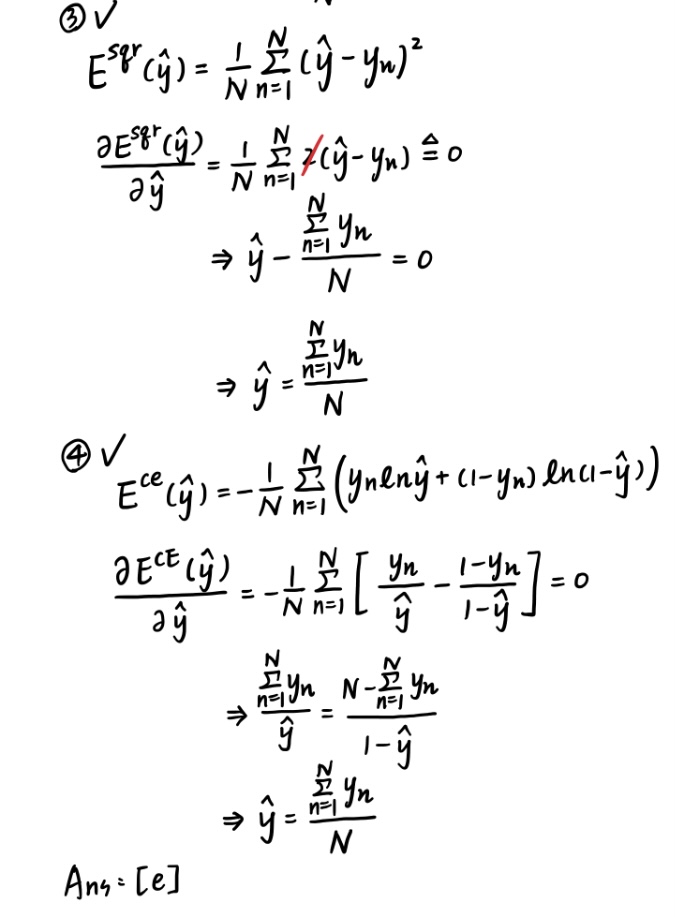 ③ ✓
E^{sqr}(ŷ) = \frac{1}{N} \sum_{n=1}^{N} (ŷ - y_n)^2
\frac{∂E^{sqr}(ŷ)}{∂ŷ} = \frac{1}{N} \sum_{n=1}^{N} 2(ŷ - y_n) ≜ 0
⇒ ŷ - \frac{\sum_{n=1}^{N} y_n}{N} = 0
⇒ ŷ = \frac{\sum_{n=1}^{N} y_n}{N}
④ ✓
E^{ce}(ŷ) = -\frac{1}{N} \sum_{n=1}^{N} (y_n ln ŷ + (1-y_n) ln(1-ŷ))
\frac{∂E^{CE}(ŷ)}{∂ŷ} = -\frac{1}{N} \sum_{n=1}^{N} [\frac{y_n}{ŷ} - \frac{1-y_n}{1-ŷ}] = 0
⇒ \frac{\sum_{n=1}^{N} y_n}{ŷ} = \frac{N - \sum_{n=1}^{N} y_n}{1-ŷ}
⇒ ŷ = \frac{\sum_{n=1}^{N} y_n}{N}
Ans = [e]